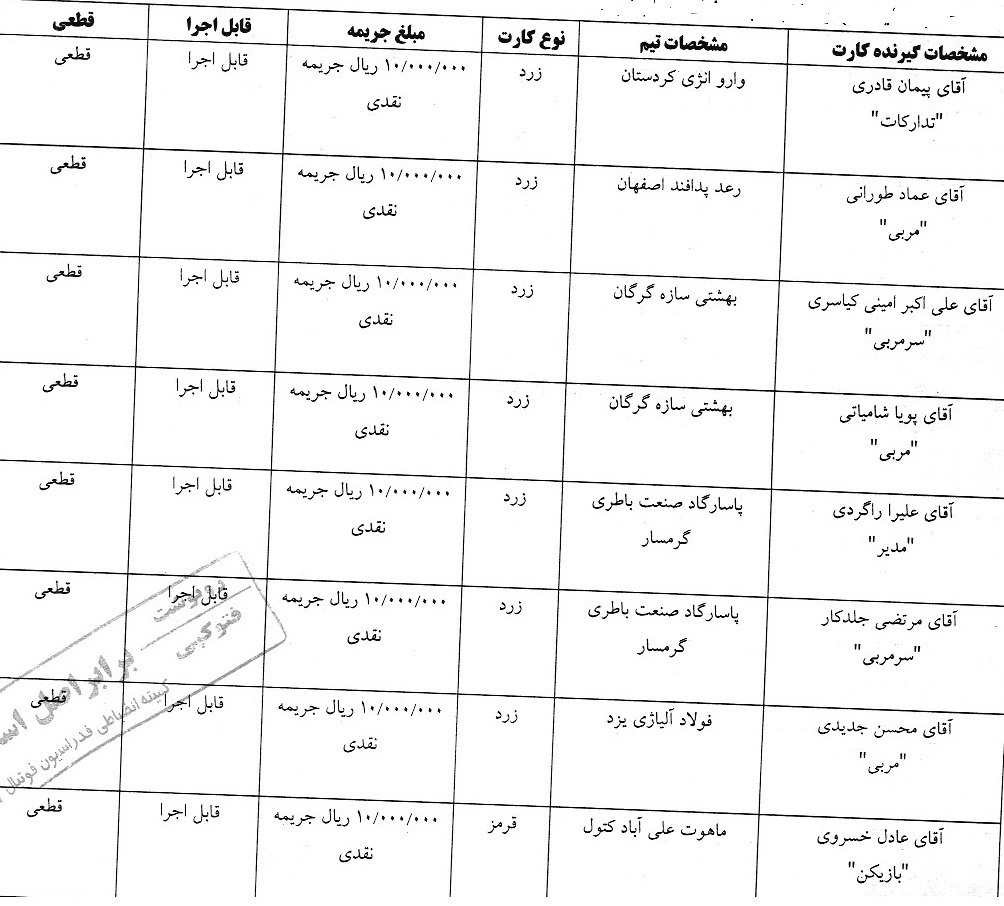 مشخصات گیرنده کارت	مشخصات تیم	نوع کارت	مبلغ جریمه	قابل اجرا	قطعی
آقای پیمان قادری	وارو انژی کردستان	زرد	۱۰/۰۰۰/۰۰۰ ریال جریمه	قابل اجرا	قطعی
"تدارکات"	نقدی
آقای عماد طورانی	رعد پدافند اصفهان	زرد	۱۰/۰۰۰/۰۰۰ ریال جریمه	قابل اجرا	قطعی
"مربی"	نقدی
آقای علی اکبر امینی کیاسری	بهشتی سازه گرگان	زرد	۱۰/۰۰۰/۰۰۰ ریال جریمه	قابل اجرا	قطعی
"سرمربی"	نقدی
آقای پویا شامیاتی	بهشتی سازه گرگان	زرد	۱۰/۰۰۰/۰۰۰ ریال جریمه	قابل اجرا	قطعی
"مربی"	نقدی
آقای علیرا راگردی	پاسارگاد صنعت باطری	زرد	۱۰/۰۰۰/۰۰۰ ریال جریمه	قابل اجرا	قطعی
"مدیر"	گرمسار	نقدی
آقای مرتضی جلدکار	پاسارگاد صنعت باطری	زرد	۱۰/۰۰۰/۰۰۰ ریال جریمه	قابل اجرا	قطعی
"سرمربی"	گرمسار	نقدی
آقای محسن جدیدی	فولاد آلیاژی یزد	زرد	۱۰/۰۰۰/۰۰۰ ریال جریمه	قابل اجرا	قطعی
"مربی"	نقدی
آقای عادل خسروی	ماهوت علی آباد کتول	قرمز	۱۰/۰۰۰/۰۰۰ ریال جریمه	قابل اجرا	قطعی
"بازیکن"	نقدی
رونوست
فتوکپی
برابر اصل
کمیته انضباطی فدراسیون فوتبال